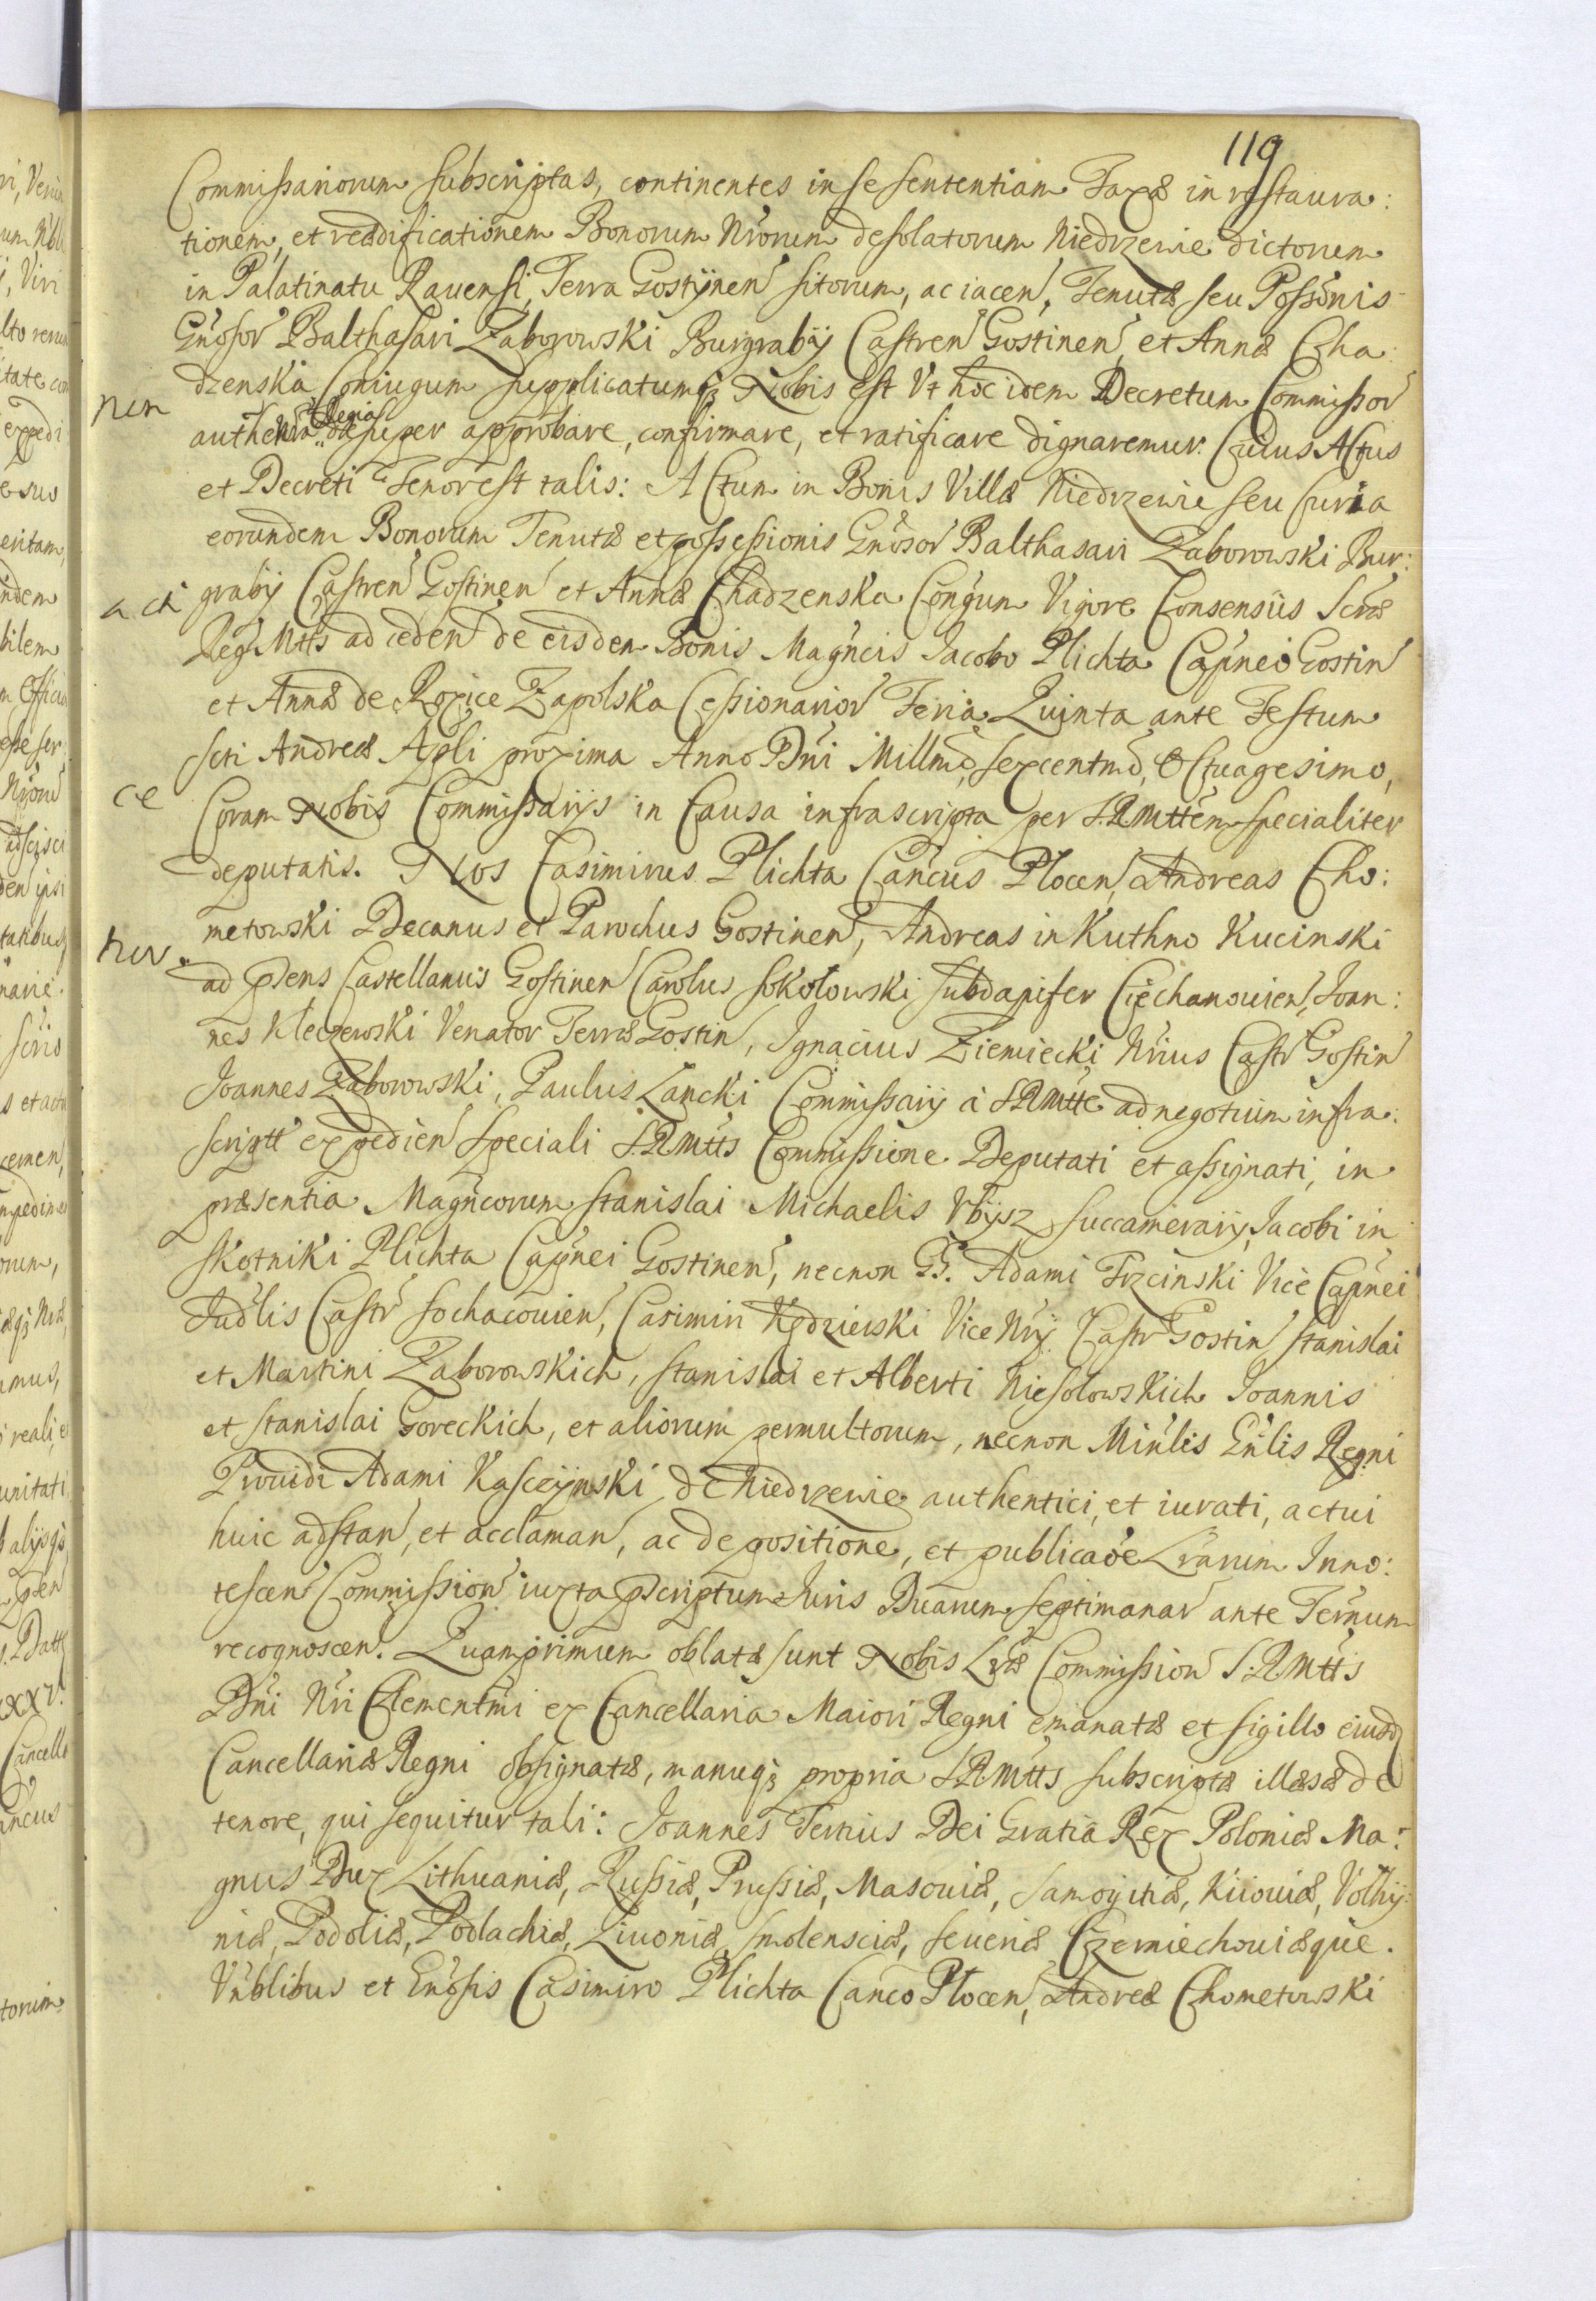 119
Commissariorum subscriptas, continentes in se sententiam Taxæ in restaura:
tionem, et reædificationem Bonorum Nrorum desolatorum Niedrzewie dictorum
in Palatinatu Rauensi, Terra Gostÿnen sitorum, ac iacen, Tenutæ seu Possonis
Gnosor Balthasari Zaborowski Burgrabÿ Castren Gostinen et Annæ Cha:
dzenska Coniugum supplicatumq; Nobis est Vt hoc idem Decretum Commissor
nen
Regia
desuper approbare, confirmare, et ratificare dignaremur. Cuius Actus
et Decreti Tenor est talis: Actum in Bonis Villæ Niedrzewie seu Curia
eorundem Bonorum Tenutæ et possessionis Gnosor Balthasari Zaborowski Bur:
a ch
grabÿ Castren Gostinen et Annæ Chadzenska Congum Vigore Consensus Scræ
Reg Mttis ad ceden de eisdem Bonis Magncis Jacobo Plichta Capneo Gostin
et Annæ de Roxice Zapolska Cessionarior Feria Quinta ante Festum
Scti Andreæ Apli proxima Anno Dni Millmo, sexcentmo, Octuagesimo,
ce
Coram Nobis Commissarijs in Causa infrascripta per S.RMttem specialiter
deputatis. Nos Casimirus Plichta Cancus Plocen, Andreas Cho:
metowski Decanus et Parochus Gostinen, Andreas in Kuthno Kucinski
ner.
ad psens Castellanus Gostinen Carolus Sokolowski Subdapifer Ciechanouien, Joan:
nes Kleczewski Venator Terræ Gostin, Ignacius Ziemiecki Nrius Castr Gostin
Joannes Zaborowski, Paulus Lancki Commissarij à SRMtte ad negotium infra:
scriptt expedien speciali S.RMttis Commissione Deputati et assignati, in
præsentia Magncorum Stanislai Michaelis Vbysz Succamerarij, Jacobi in
Skotniki Plichta Capnei Gostinen, necnon GG. Adami Trzcinski Vice Capnei
Judlis Castr Sochacouien, Casimiri Kędzierski Vice Nrij Castr Gostin Stanislai
et Martini Zaborowskich, Stanislai et Alberti Niesolowskich Joannis
et Stanislai Goreckich, et aliorum permultorum, necnon Minlis Gnlis Regni
Prouidi Adami Kasczynski de Niedrzewie authentici, et iurati, actui
huic adstan, et acclaman, ac de positione, et publicaoe Lrarum Inno:
tescen Commission iuxta pscriptum Juris Duarum septimanar ante Ternum
recognoscen. Quamprimum oblatæ sunt Nobis Lræ Commission S:RMttis
Dni Nri Clementmi ex Cancellaria Maiori Regni emanatæ et sigillo eiusd
Cancellariæ Regni obsignatæ, manuq; propria SRMttis subscriptæ illæsæ de
tenore, qui sequitur tali: Joannes Tertius Dei Gratia Rex Poloniæ Ma:
gnus Dux Lithuaniæ, Russiæ, Prussiæ, Masouiæ, Samogitiæ, Kiiouiæ, Volhy:
niæ, Podoliæ, Podlachiæ, Liuoniæ, Smolensciæ, Seueriæ Czerniechouiæque.
Vnblibus et Gnosis Casimiro Plichta Canco Plocen, Andreæ Chometowski